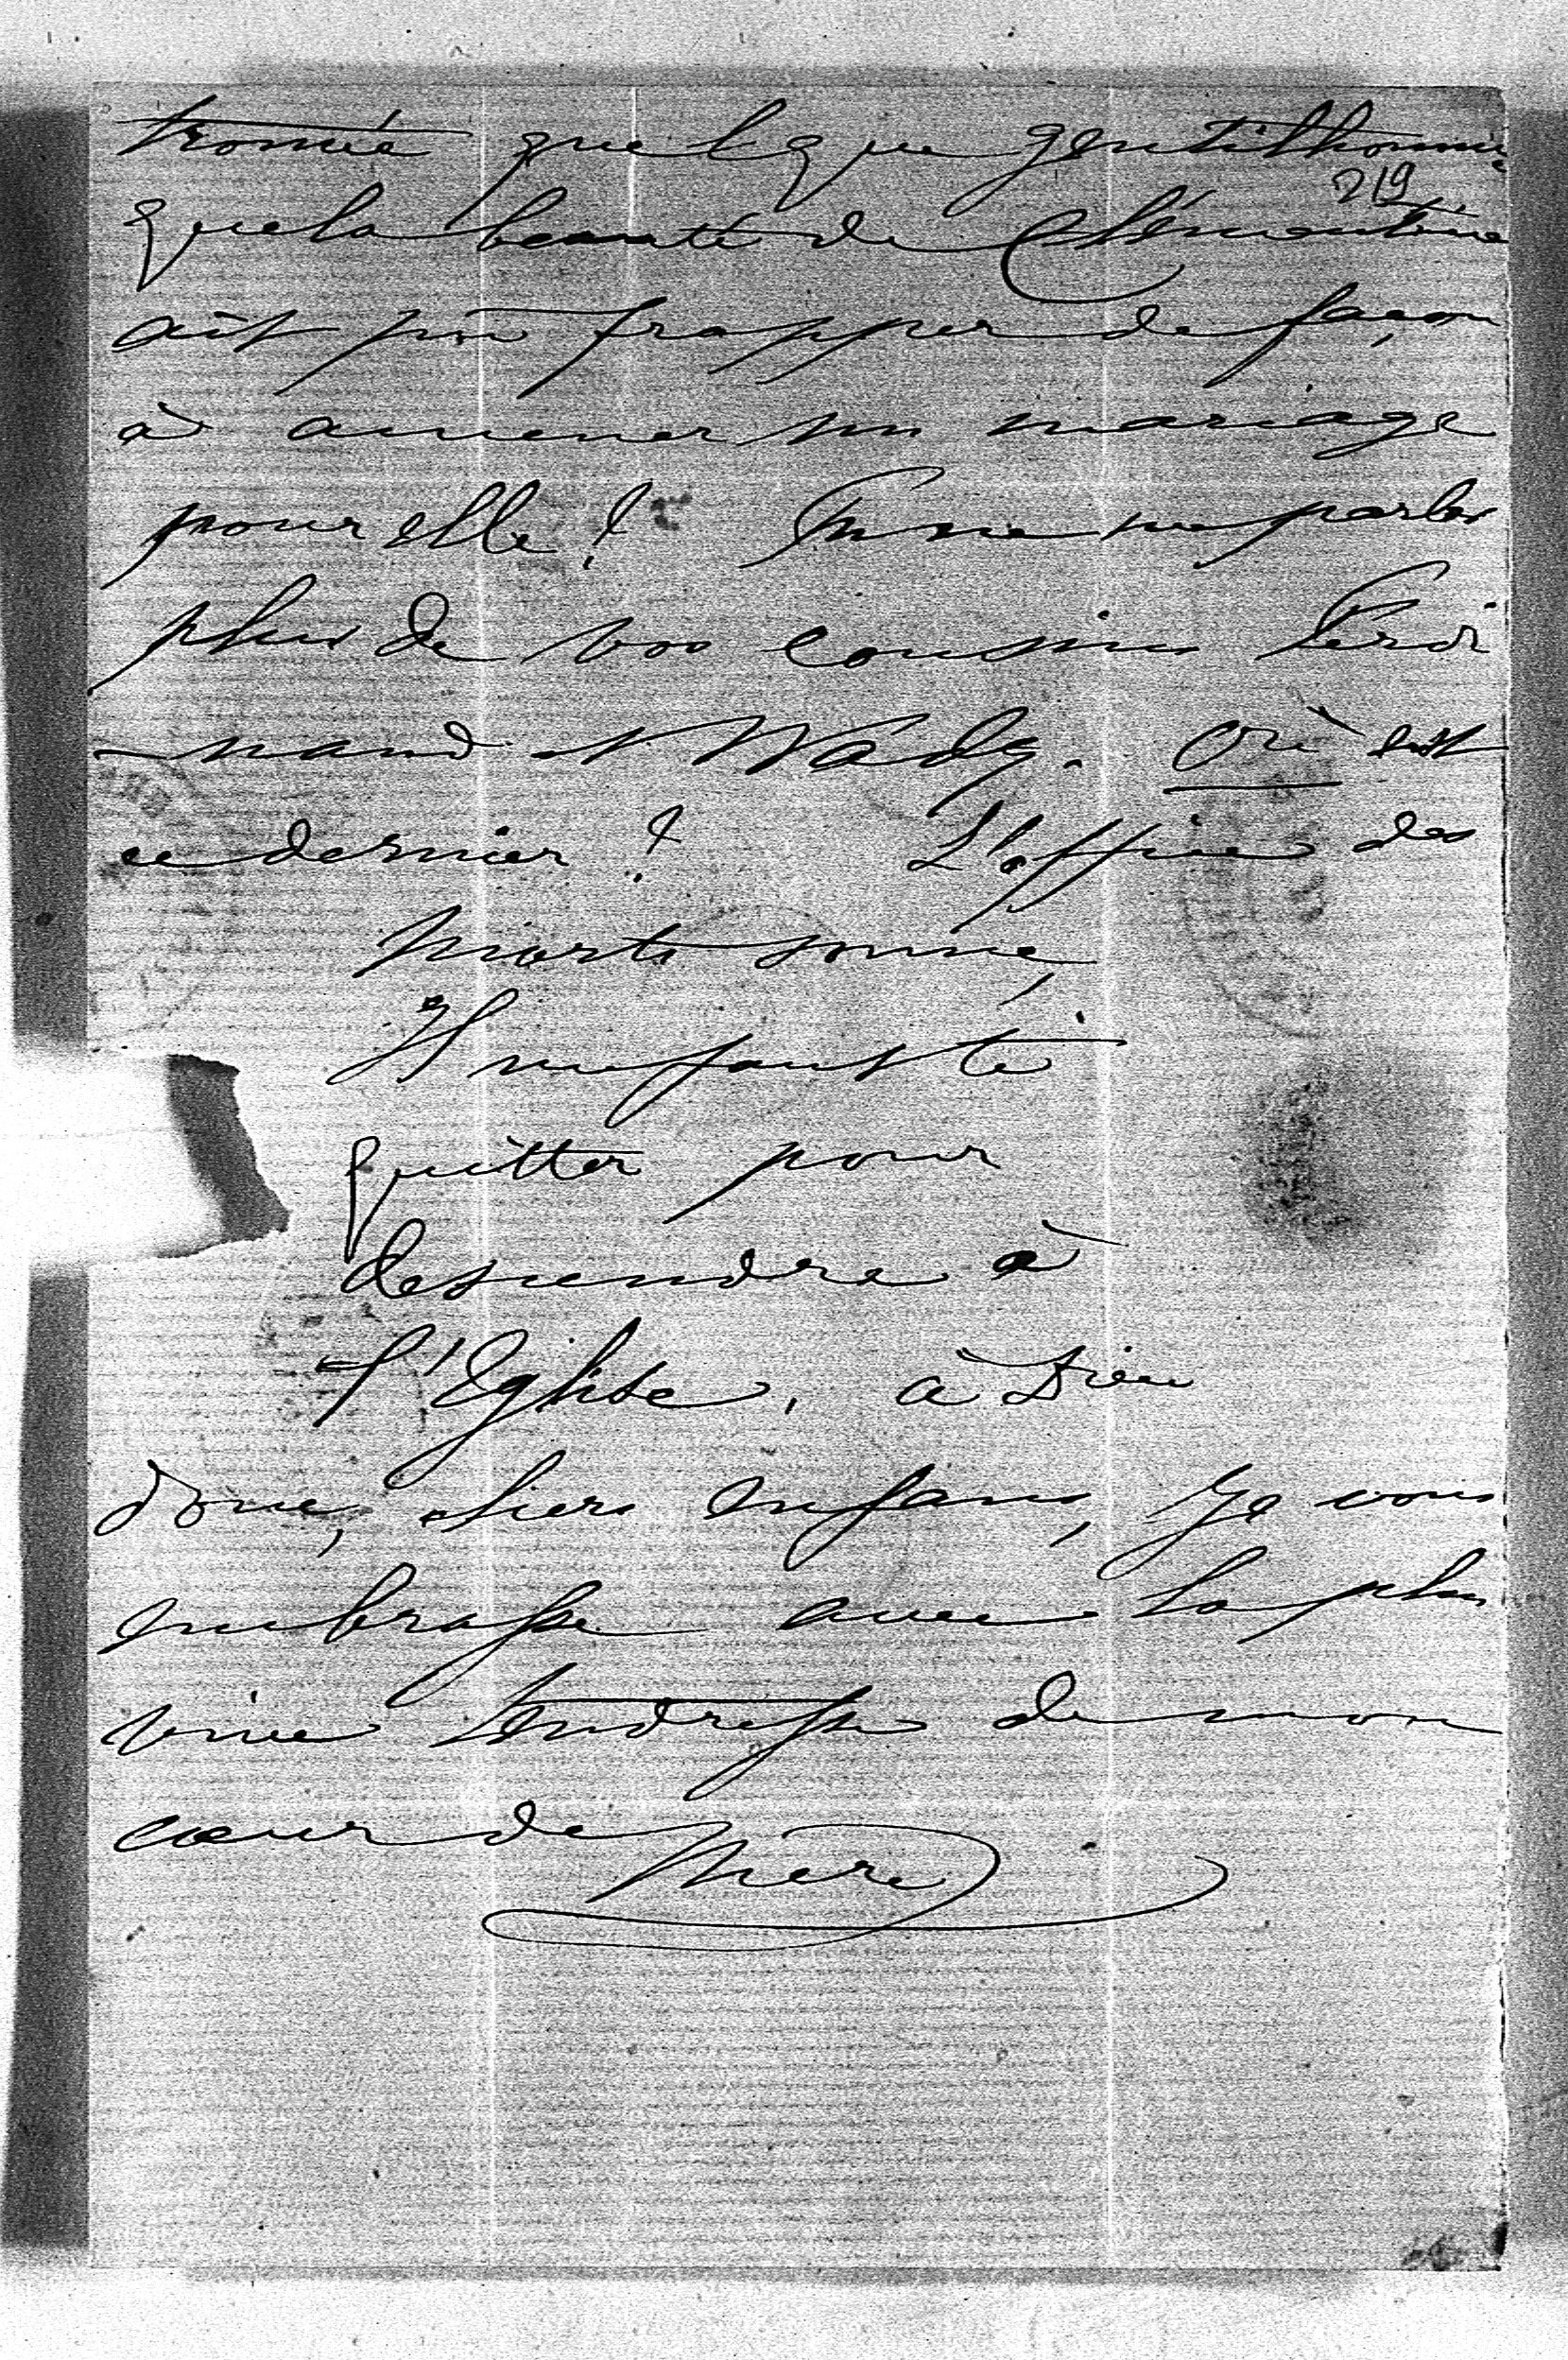 trouvé quelque gentilhomme
219
que la beauté de Clémentine
ait pû frapper de façon
à amener un mariage
pour elle ? Tu ne me parles
plus de vos cousins Ferdi
nand et Wady. Où est
ce dernier ? L'office des
morts sonne,
Il me faut te
quitter pour
descendre à
l'Eglise. à Dieu
donc, chers enfans, Je vous
embrasse avec la plus
vive tendresse de mon
cœur de Mère